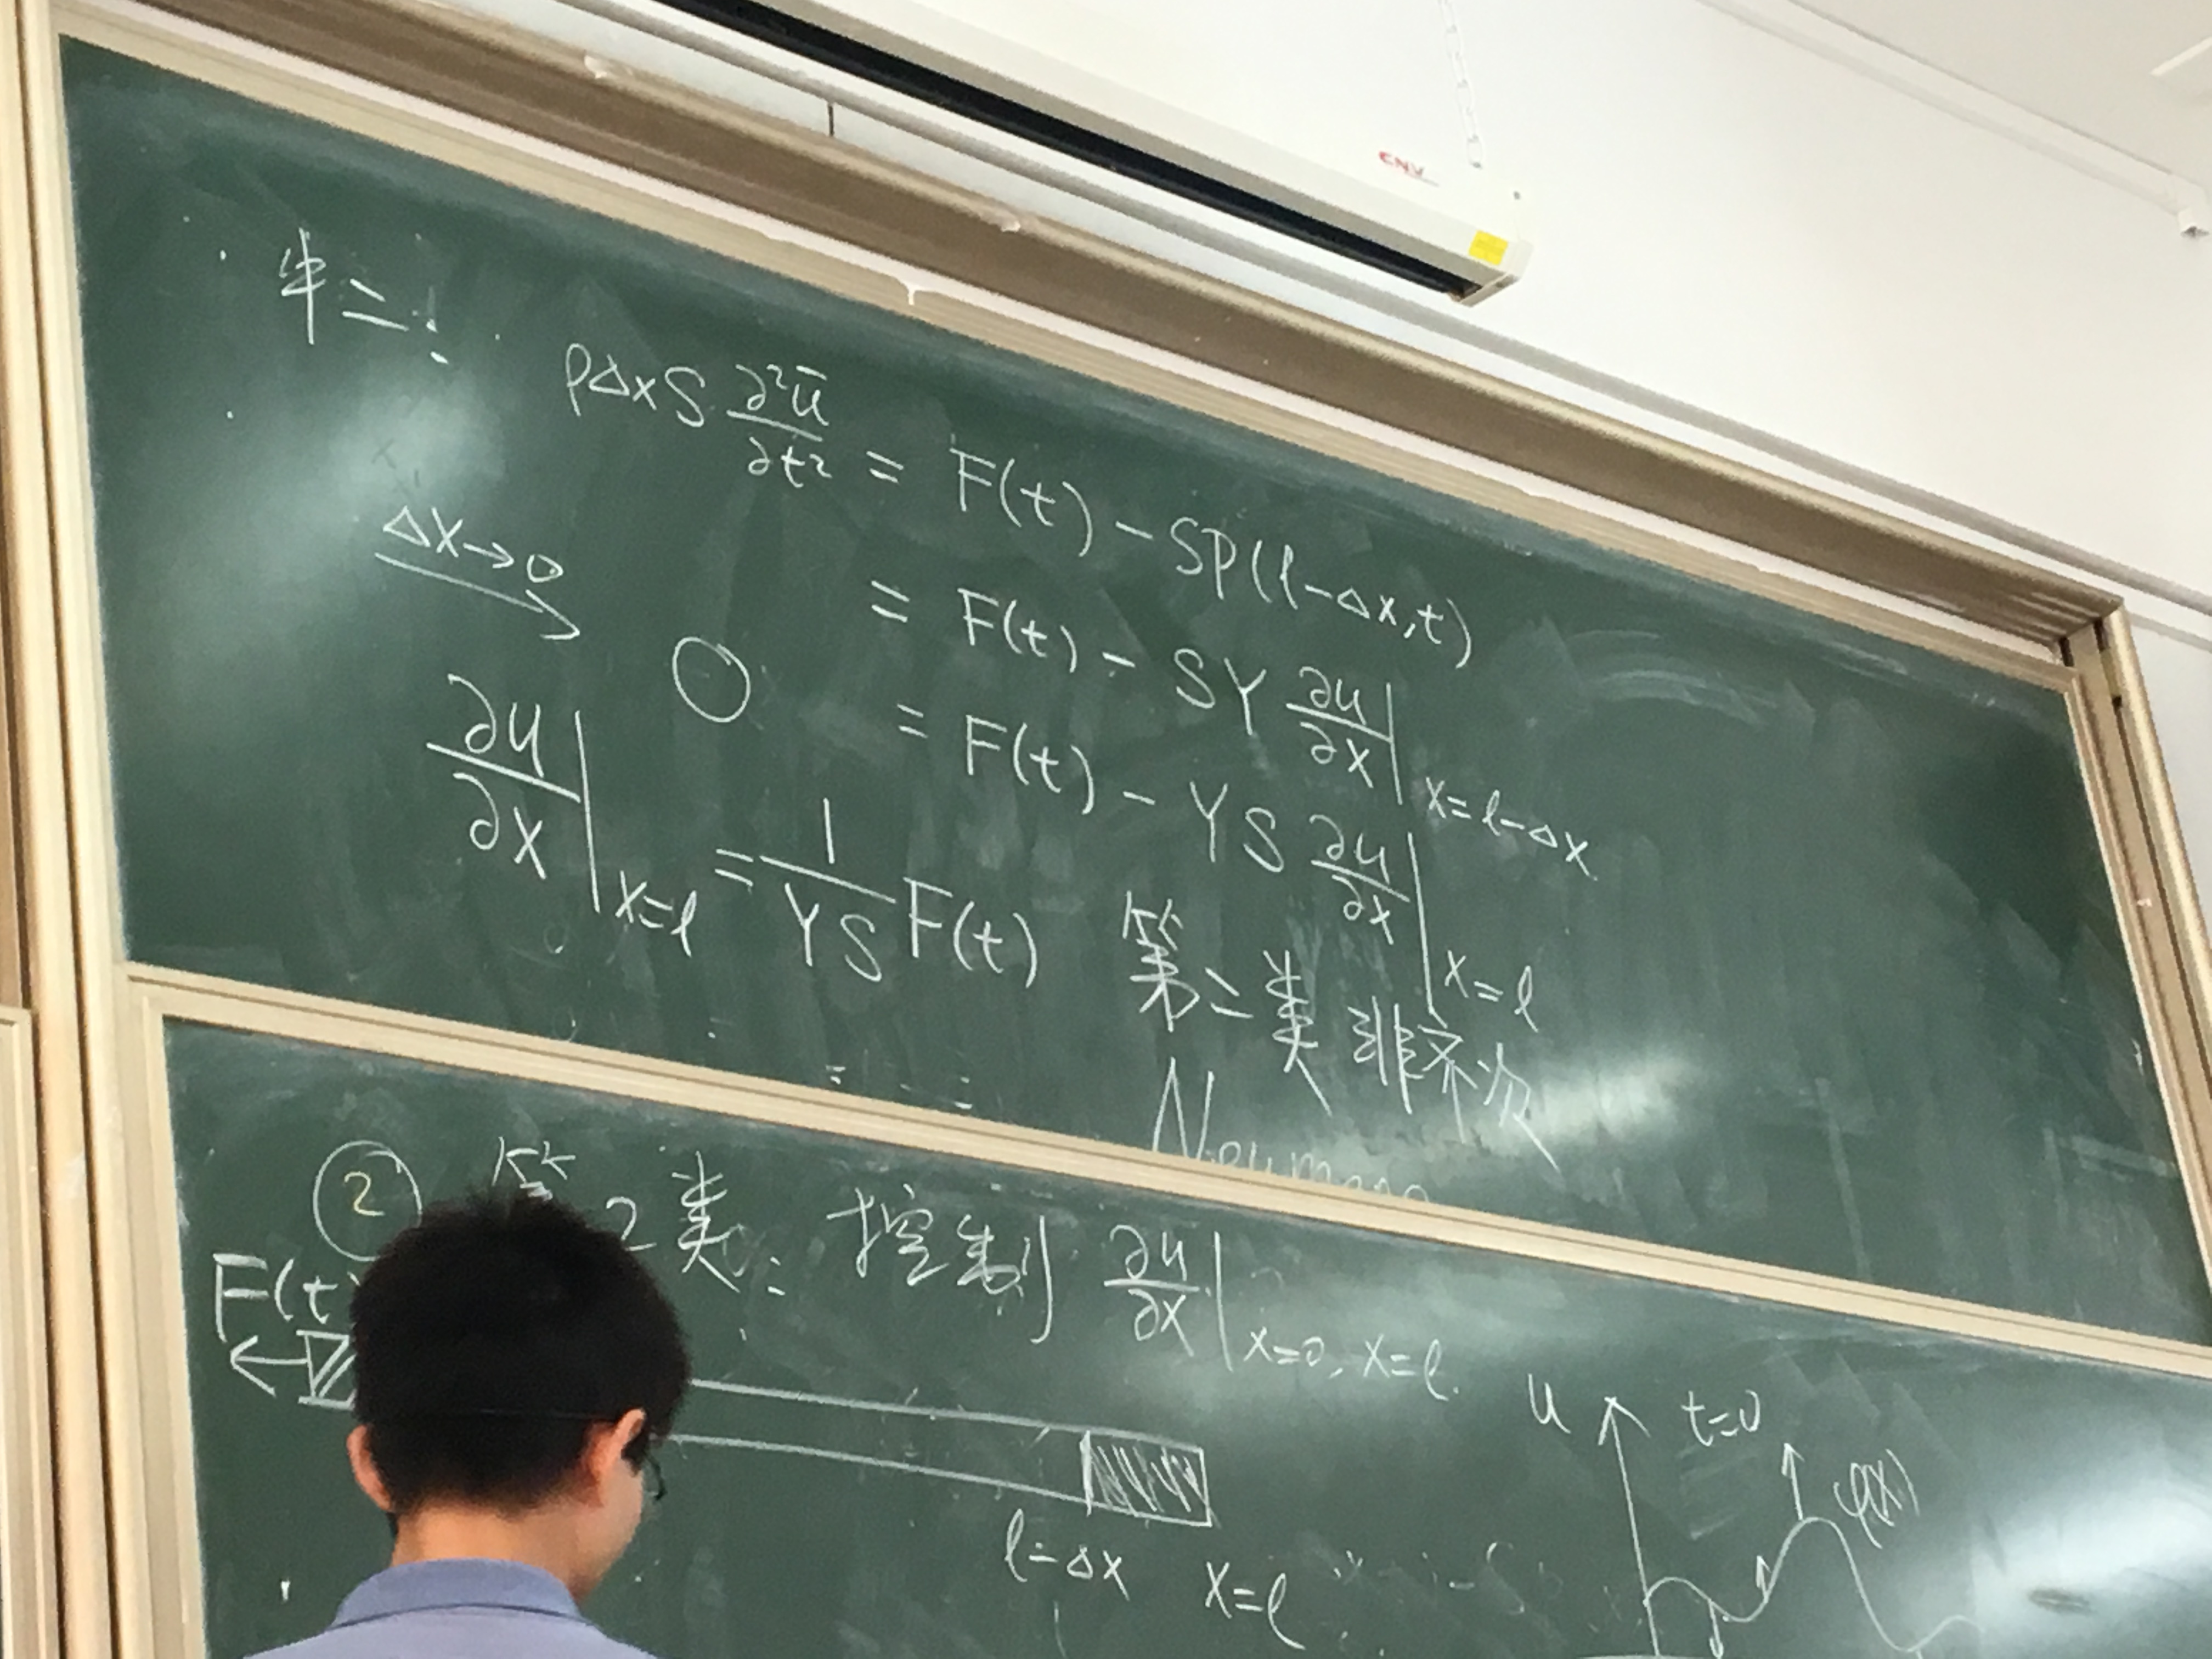 CNV
牛二:
ρΔxS ∂²ū/∂t² = F(t) - SP(l-Δx,t)
= F(t) - SY ∂u/∂x |x=l-Δx
Δx→0
0 = F(t) - YS ∂u/∂x |x=l
∂u/∂x |x=l = 1/YS F(t) 第二类非齐次
Neumann
② 第2类: 控制 ∂u/∂x |x=0, x=l.
F(t)
l-Δx x=l
u t=0
φ(x)